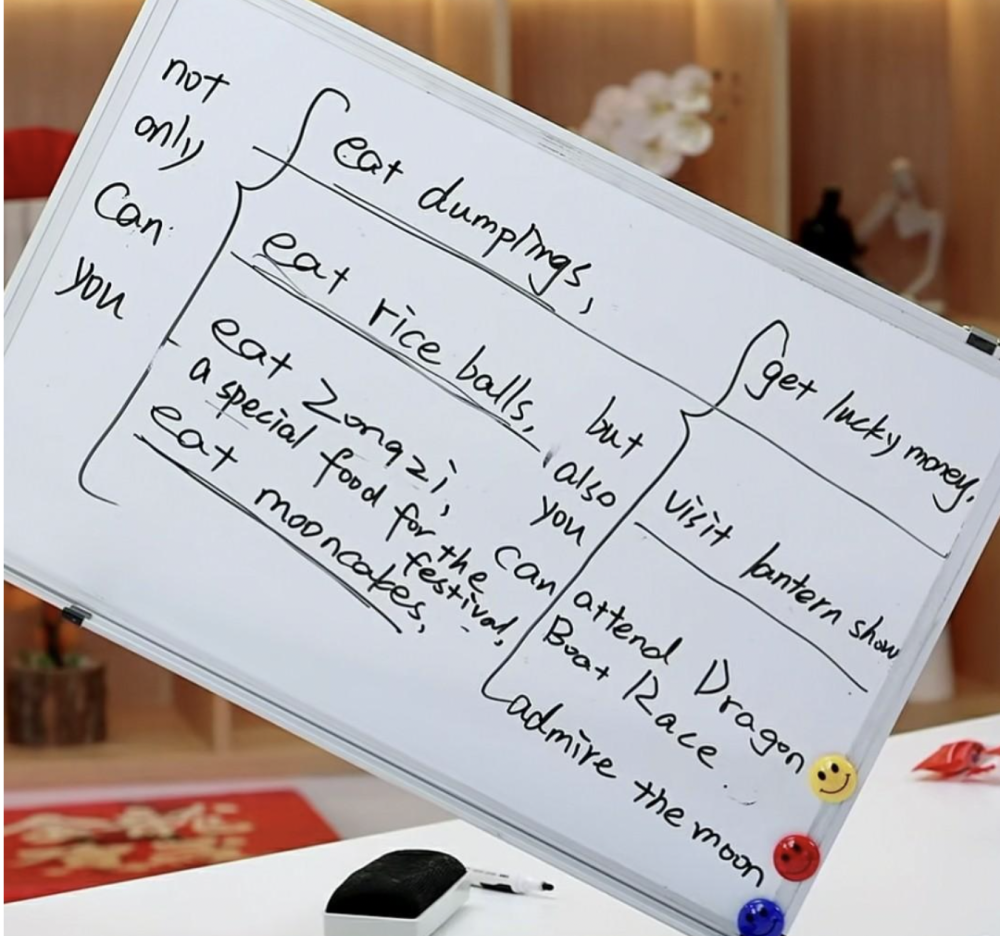 not
only
Can
you
eat dumplings,
eat rice balls,
eat Zongzi,
a special food for the
festival,
eat mooncakes,
but
also
you
can
get lucky money.
visit lantern show
attend Dragon
Boat Race
admire the moon